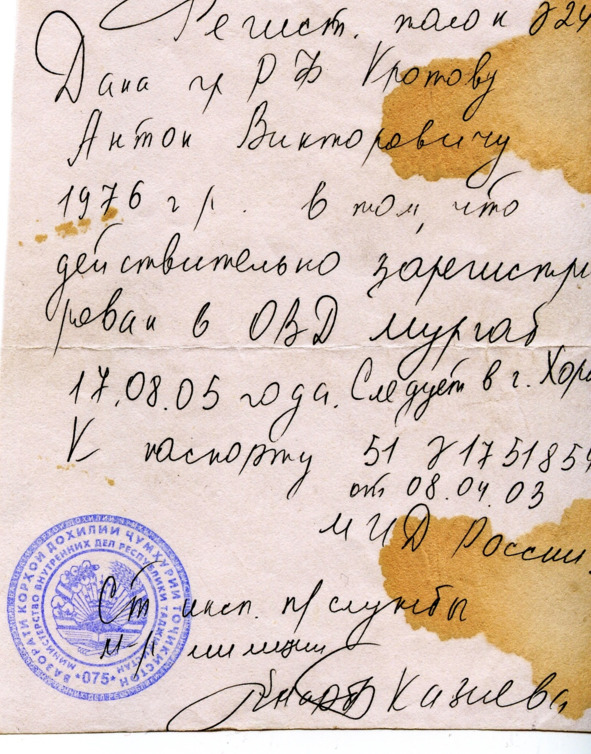 Регист. талон №24
Дана гр РФ Кротову
Антон Викторовичу
1976 г р. в том, что
действительно зарегистри
рован в ОВД Мургаб
17.08.05 года. Следует в г. Хоро
К паспорту 51 №1751854
от 08.04.03
МИД России.
Ст инсп. п/службы
м-р милиции
Казиева
ВАЗОРАТИ КОРҲОИ ДОХИЛИИ ҶУМҲУРИИ ТОҶИКИСТОН
МИНИСТЕРСТВО ВНУТРЕННИХ ДЕЛ РЕСПУБЛИКИ ТАДЖИКИСТАН
*075*